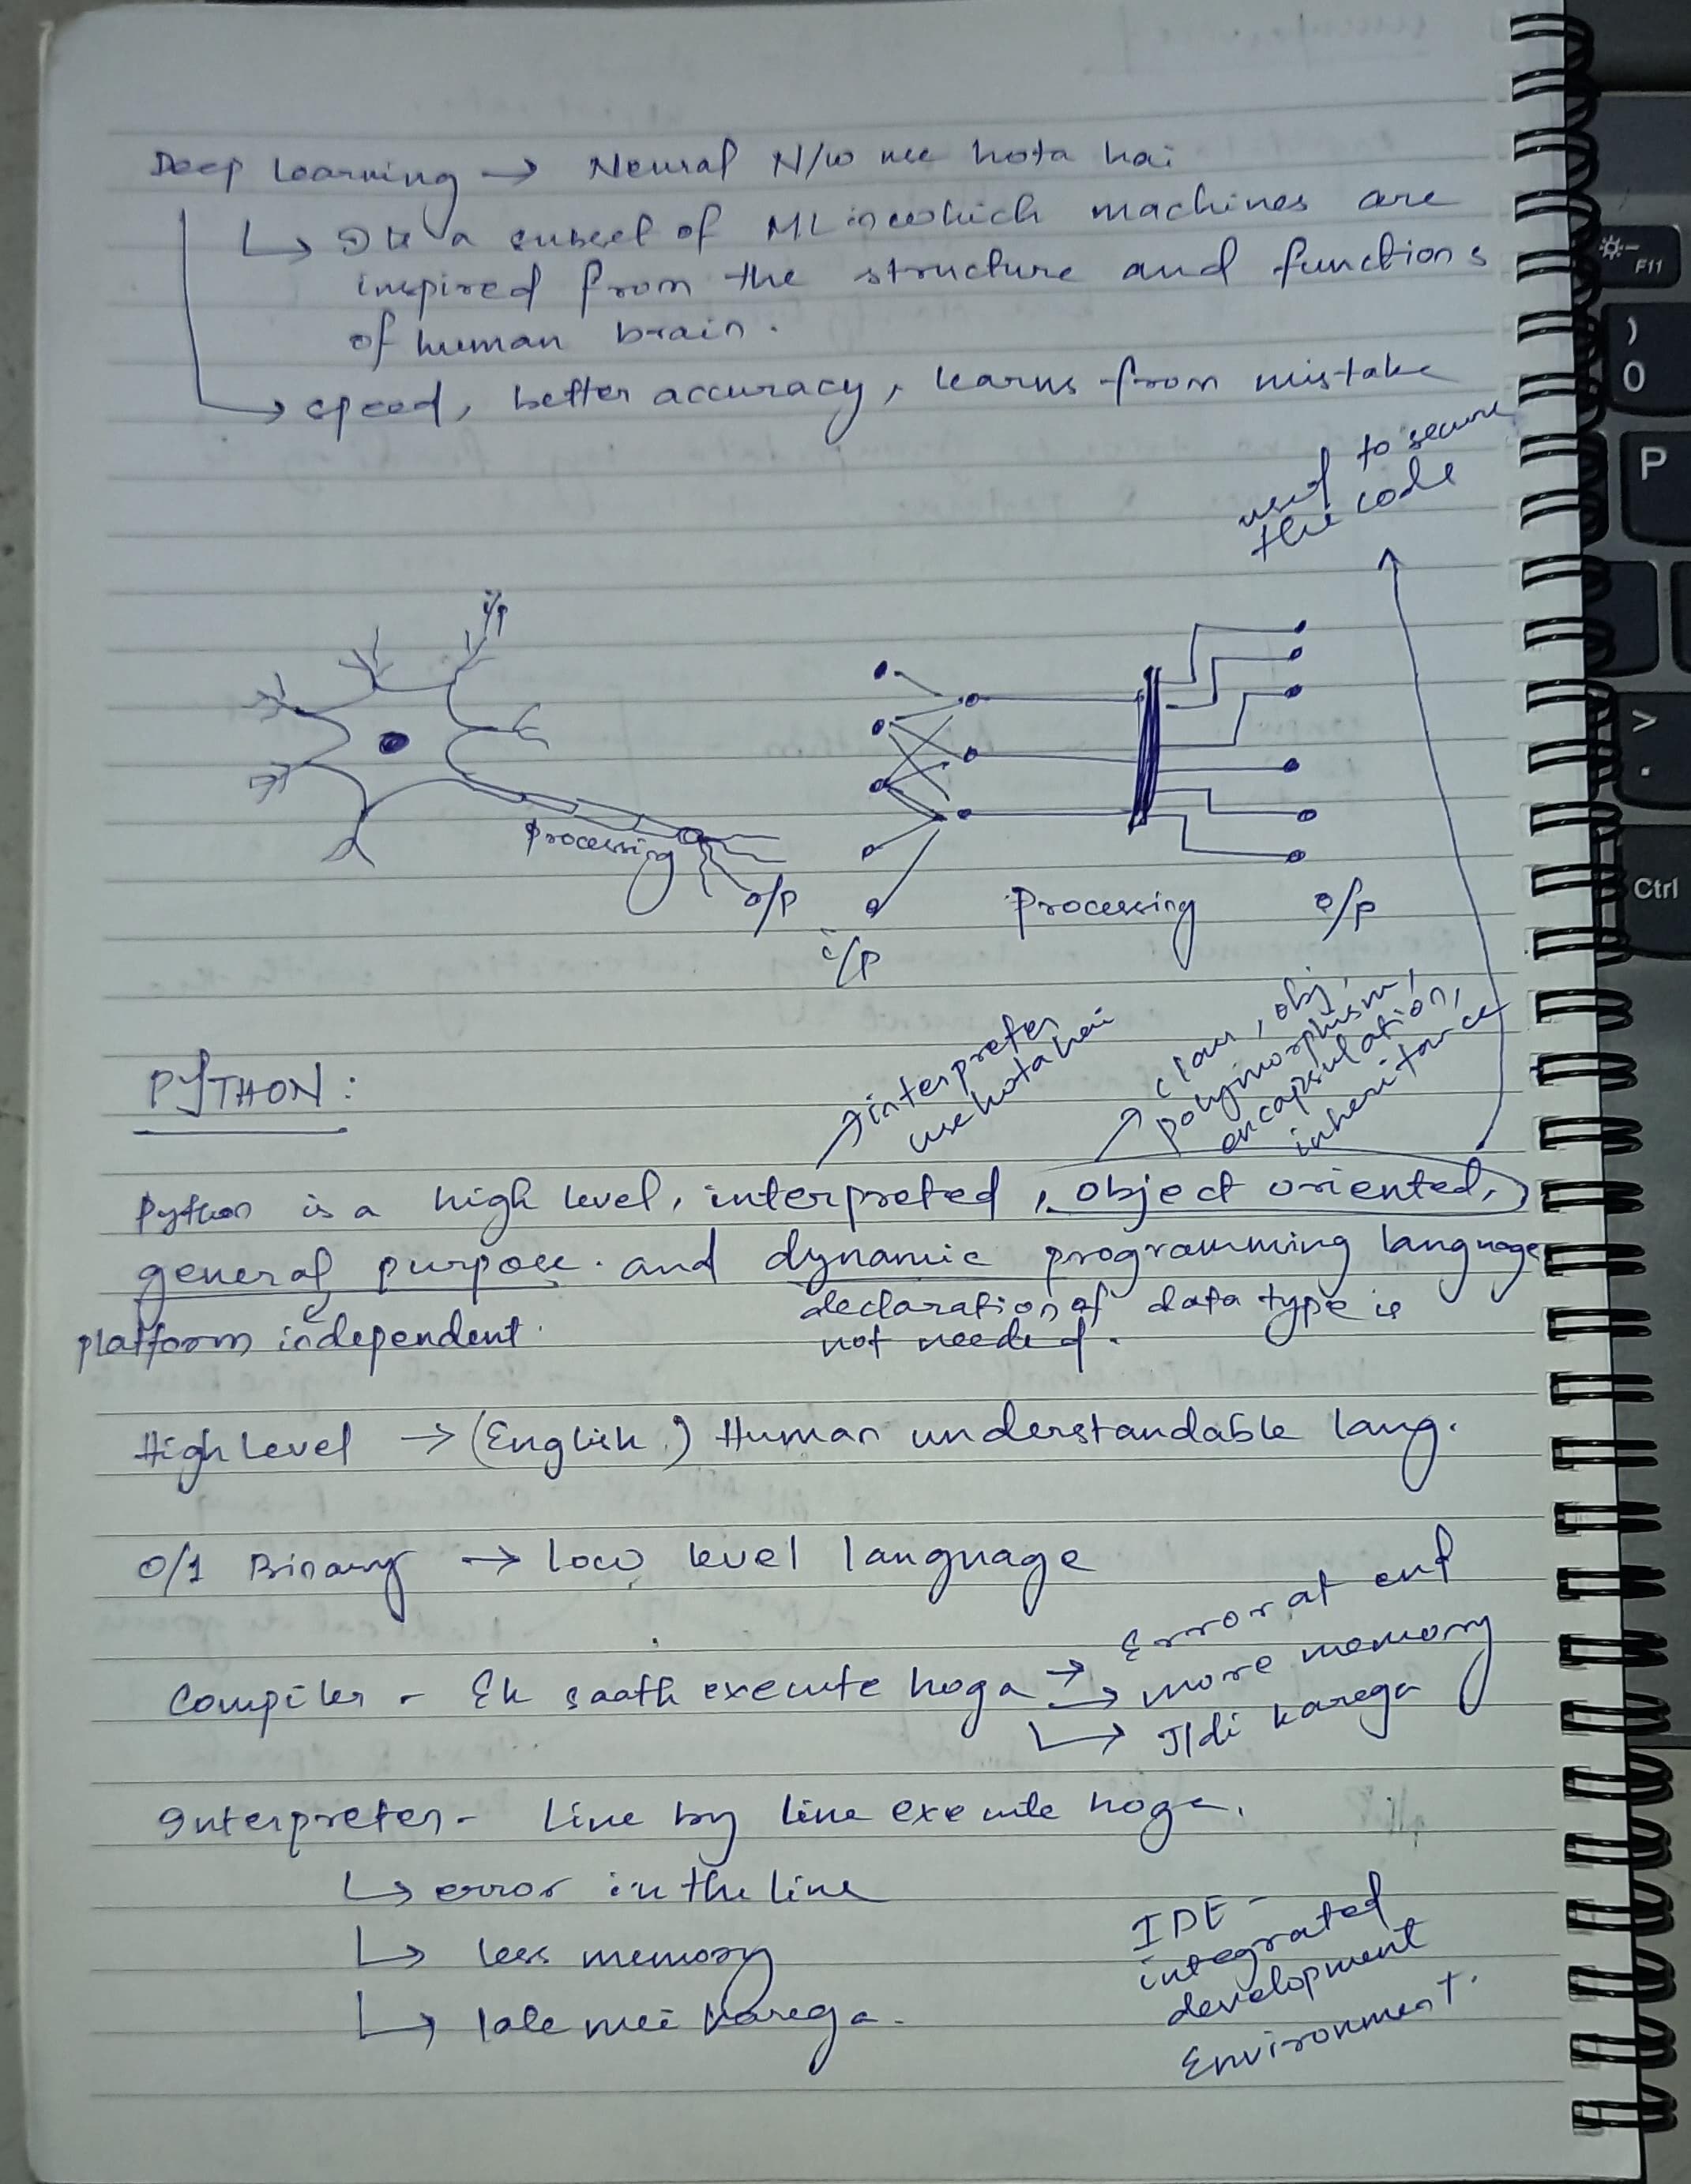 Deep Learning → Neural N/w use hota hai
↳ It is a subset of ML in which machines are
inspired from the structure and functions
of human brain.
→ speed, better accuracy, learns from mistake
used to secure
the code
i/p
Processing
o/p
i/p
Processing
o/p
PYTHON:
interpreter
use hota hai
class, obj,
polymorphism,
encapsulation,
inheritance
Python is a high level, interpreted, object oriented,
general purpose and dynamic programming language
platform independent.
declaration of data type is
not needed.
High Level → (English) Human understandable lang.
0/1 Binary → low level language
Compiler - Ek saath execute hoga → Error at end
→ more memory
↳ Jldi karega
Interpreter - Line by line execute hoga.
↳ error in the line
↳ less memory
↳ late mei karega.
IDE -
integrated
development
Environment.